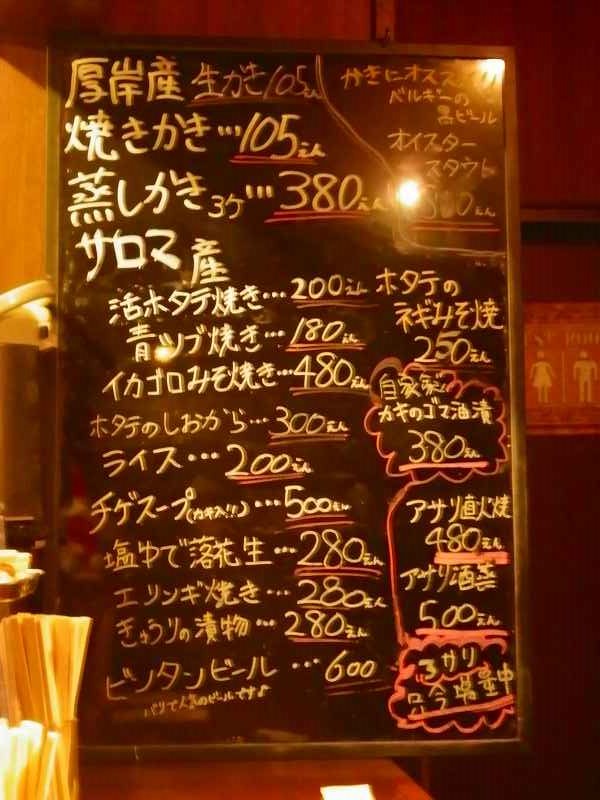 厚岸産 生がき105えん
焼きかき…105えん
蒸しかき3ケ…380えん
サロマ産
活ホタテ焼き…200えん
青ツブ焼き…180えん
イカゴロみそ焼き…480えん
ホタテのしおから…300えん
ライス…200えん
チゲスープ(カキ入り!!)…500えん
塩ゆで落花生…280えん
エリンギ焼き…280えん
きゅうりの漬物…280えん
ビンタンビール…600
バリで人気のビールです♪
かきにオススメ
ベルギーの
黒ビール
オイスター
スタウト
えん
ホタテの
ネギみそ焼
250えん
自家製
カキのゴマ油漬
380えん
アサリ直火焼
480えん
アサリ酒蒸
500えん
只今増量中